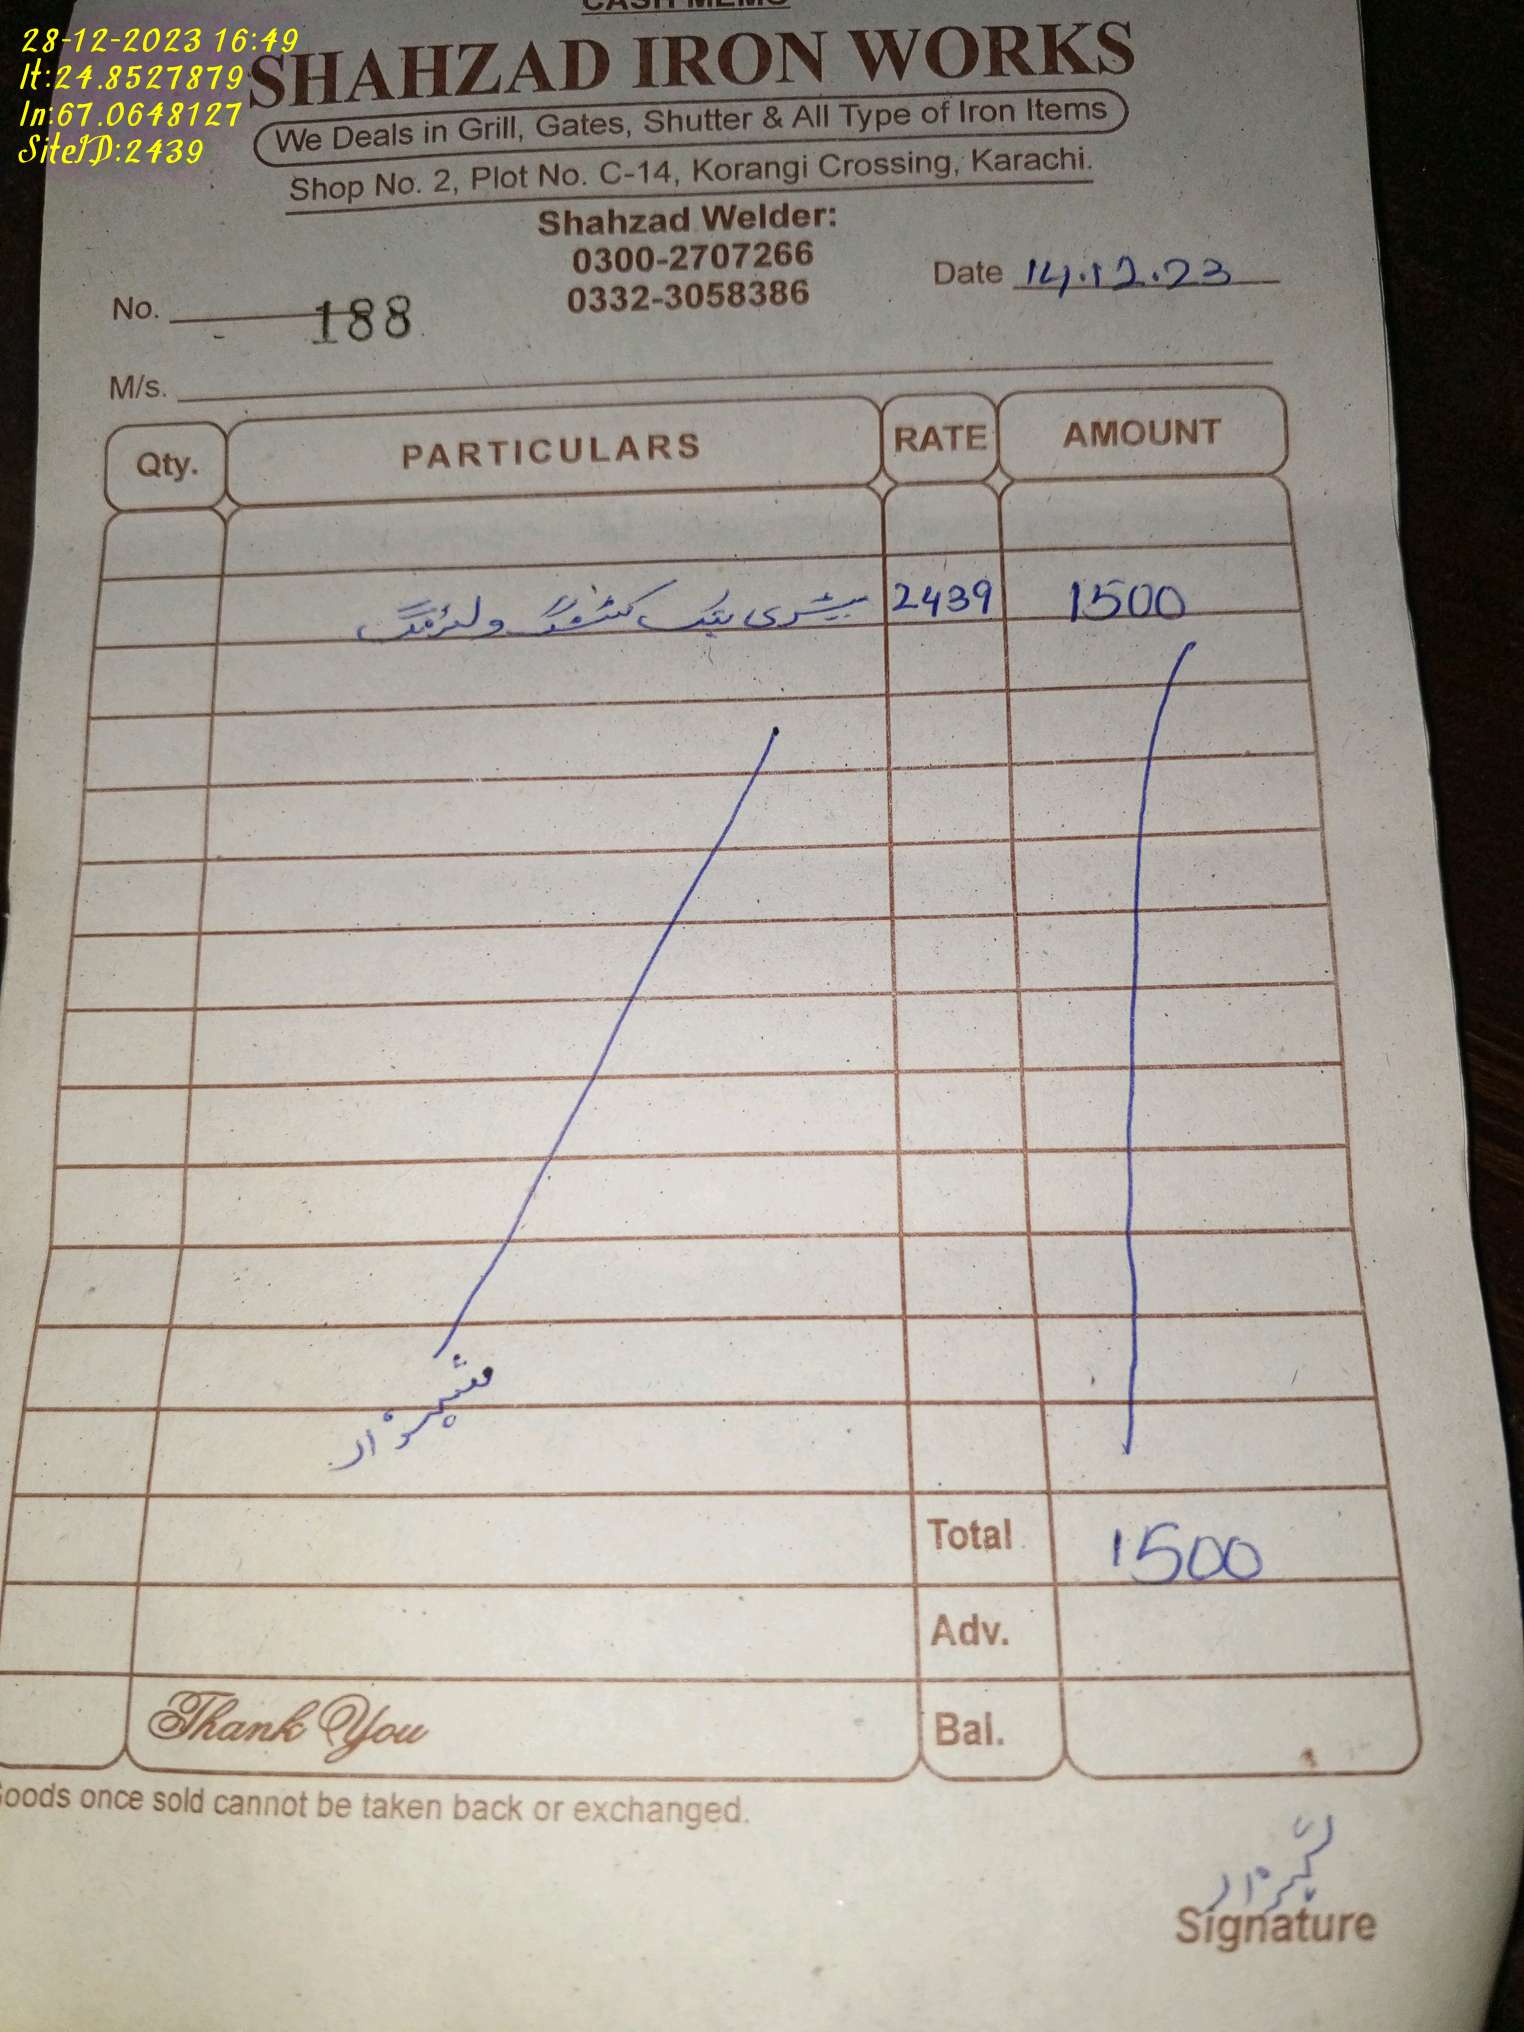 CASH MEMO
28-12-2023 16:49
lt:24.8527879
ln:67.0648127
SiteID:2439
SHAHZAD IRON WORKS
We Deals in Grill, Gates, Shutter & All Type of Iron Items
Shop No. 2, Plot No. C-14, Korangi Crossing, Karachi.
Shahzad Welder:
0300-2707266
0332-3058386
No. 188
Date 14.12.23
M/s.
Qty. PARTICULARS RATE AMOUNT
بیٹری بنک کٹنگ ولڈنگ 2439 1500
شہزاد
Total 1500
Adv.
Thank You Bal.
Goods once sold cannot be taken back or exchanged.
شہزاد
Signature